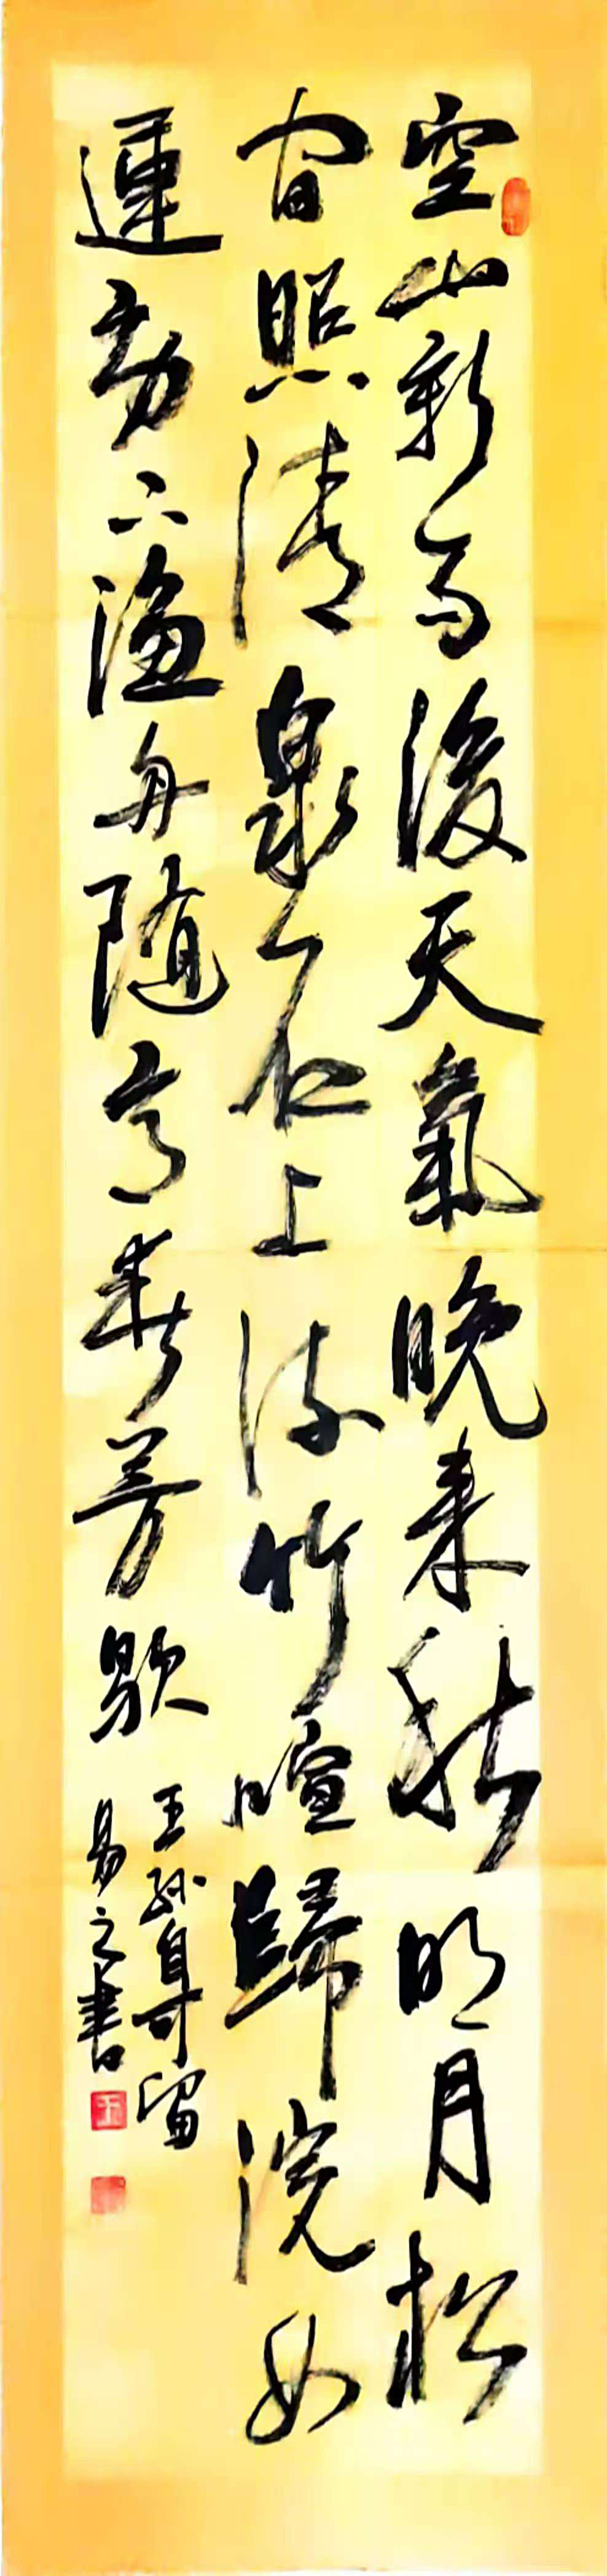 空山新雨後天氣晚来秋明月松
间照清泉石上流竹喧歸浣女
蓮動下漁舟随意春芳歇
王孫自可留
易之書